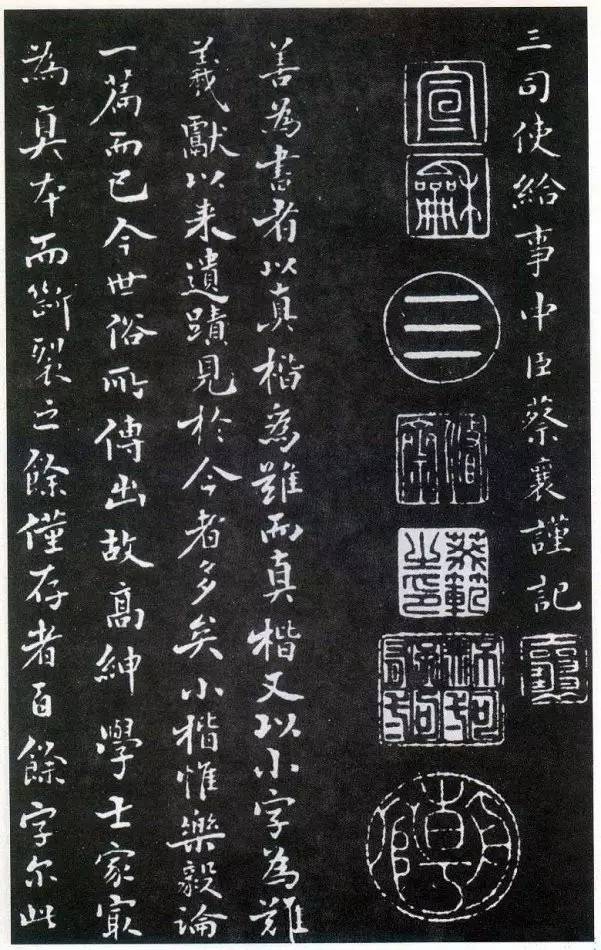 三司使給事中臣蔡襄謹記
宣
龢
善為書者以真楷為難而真楷又以小字為難
羲獻以来遺蹟見於今者多矣小楷惟樂毅論
一篇而已今世俗所傳出故高紳學士家最
為真本而斷裂之餘僅存者百餘字尓此